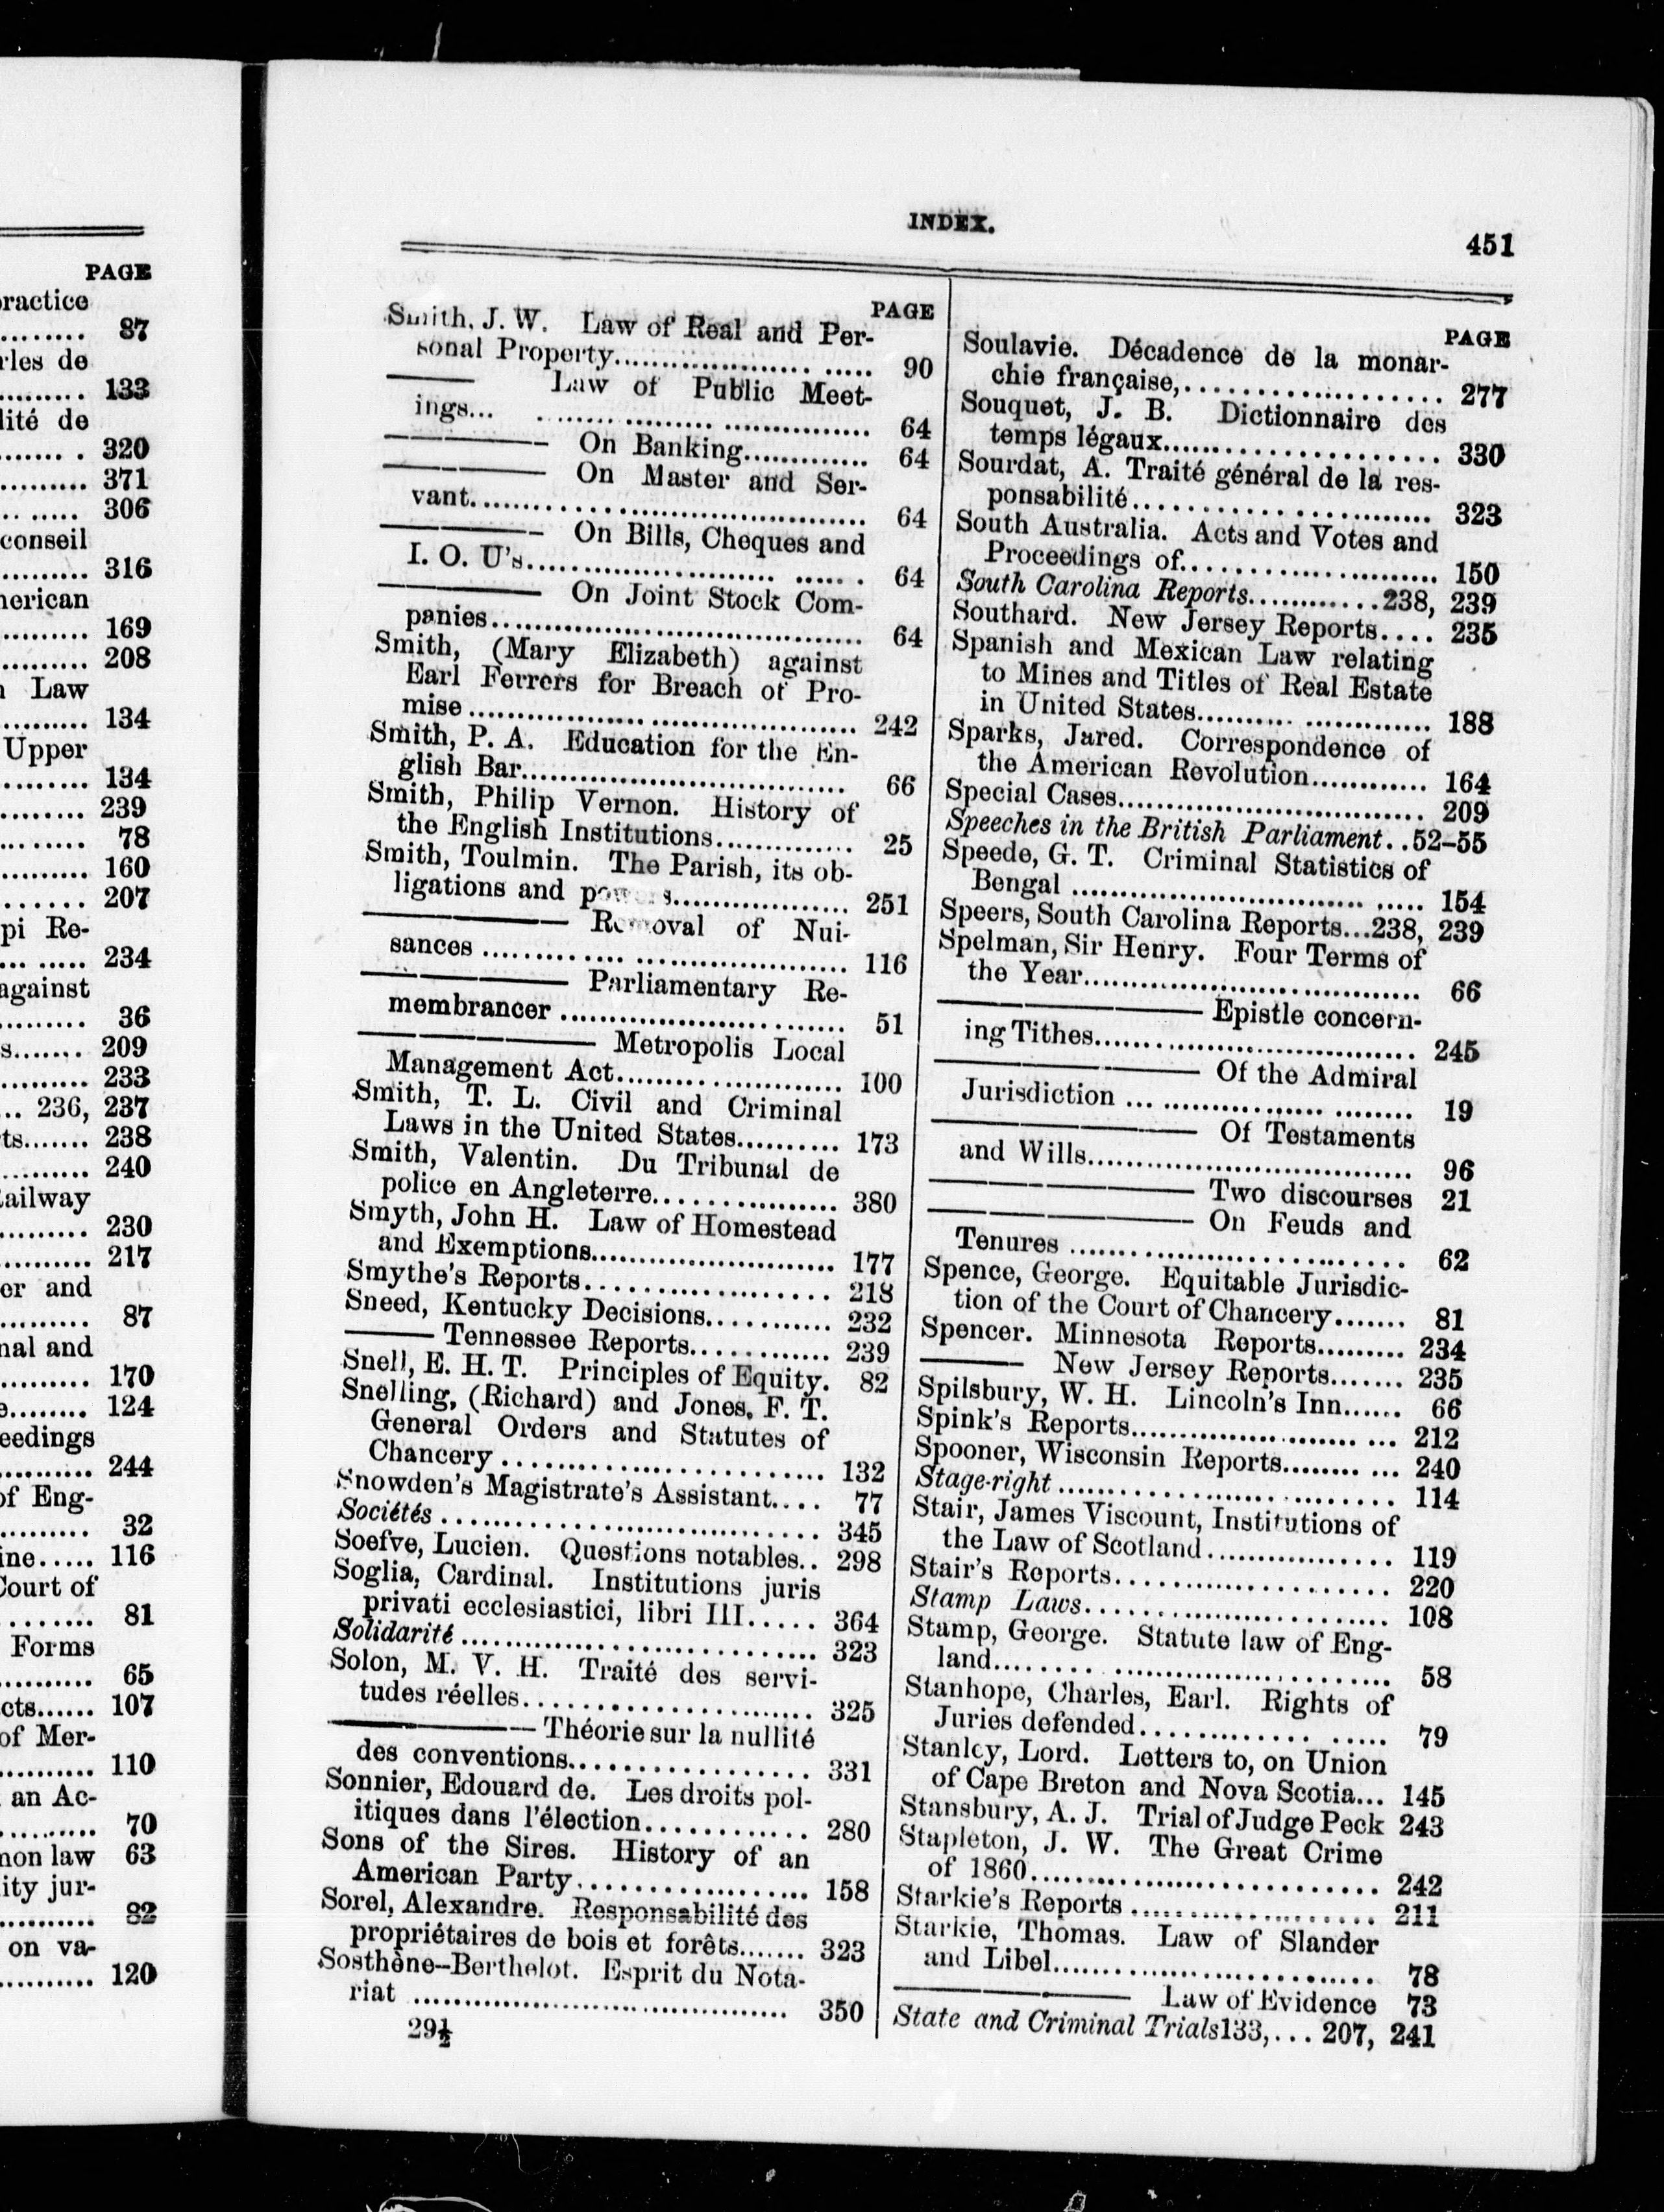 PAGE
practice
......... 87
rles de
.......... 133
lité de
....... . 320
.......... 371
... ..... 306
conseil
.......... 316
merican
.......... 169
.......... 208
n Law
.......... 134
Upper
.......... 134
.......... 239
......... 78
.......... 160
....... 207
pi Re-
... ..... 234
against
.......... 36
s....... 209
.......... 233
... 236, 237
ts....... 238
.......... 240
Railway
......... 230
......... 217
er and
......... 87
nal and
.......... 170
e........ 124
eedings
.......... 244
of Eng-
.......... 32
ine..... 116
Court of
......... 81
Forms
.......... 65
cts...... 107
of Mer-
.......... 110
an Ac-
......... 70
mon law 63
ity jur-
.......... 82
on va-
.......... 120
INDEX.
451
PAGE
Smith, J. W. Law of Real and Per-
sonal Property.................... ..... 90
——— Law of Public Meet-
ings... .................. ............... 64
—————– On Banking............. 64
—————— On Master and Ser-
vant........................................ 64
—————– On Bills, Cheques and
I. O. U's......................... ...... . 64
—————— On Joint Stock Com-
panies...................................... 64
Smith, (Mary Elizabeth) against
Earl Ferrers for Breach of Pro-
mise ....................................... 242
Smith, P. A. Education for the En-
glish Bar................................. 66
Smith, Philip Vernon. History of
the English Institutions.............. 25
Smith, Toulmin. The Parish, its ob-
ligations and powers.................. 251
——————— Removal of Nui-
sances ..................................... 116
——————— Parliamentary Re-
membrancer ............................. 51
———————— Metropolis Local
Management Act....................... 100
Smith, T. L. Civil and Criminal
Laws in the United States.......... 173
Smith, Valentin. Du Tribunal de
police en Angleterre................... 380
Smyth, John H. Law of Homestead
and Exemptions......................... 177
Smythe's Reports......................... 218
Sneed, Kentucky Decisions............ 232
——— Tennessee Reports............. 239
Snell, E. H. T. Principles of Equity. 82
Snelling, (Richard) and Jones, F. T.
General Orders and Statutes of
Chancery ................................. 132
Snowden's Magistrate's Assistant.... 77
Sociétés ...................................... 345
Soefve, Lucien. Questions notables.. 298
Soglia, Cardinal. Institutions juris
privati ecclesiastici, libri III..... 364
Solidarité .................................... 323
Solon, M. V. H. Traité des servi-
tudes réelles.............................. 325
——————— Théorie sur la nullité
des conventions......................... 331
Sonnier, Edouard de. Les droits pol-
itiques dans l'élection................. 280
Sons of the Sires. History of an
American Party........................ 158
Sorel, Alexandre. Responsabilité des
propriétaires de bois et forêts....... 323
Sosthène–Berthelot. Esprit du Nota-
riat ....................................... 350
29½
PAGE
Soulavie. Décadence de la monar-
chie française,........................... 277
Souquet, J. B. Dictionnaire des
temps légaux............................. 330
Sourdat, A. Traité général de la res-
ponsabilité................................ 323
South Australia. Acts and Votes and
Proceedings of........................... 150
South Carolina Reports.............238, 239
Southard. New Jersey Reports.... 235
Spanish and Mexican Law relating
to Mines and Titles of Real Estate
in United States......................... 188
Sparks, Jared. Correspondence of
the American Revolution............ 164
Special Cases............................... 209
Speeches in the British Parliament..52–55
Speede, G. T. Criminal Statistics of
Bengal .................................... 154
Speers, South Carolina Reports...238, 239
Spelman, Sir Henry. Four Terms of
the Year................................... 66
————————— Epistle concern-
ing Tithes................................. 245
————————— Of the Admiral
Jurisdiction ... ................ ........ 19
————————— Of Testaments
and Wills.................................. 96
————————— Two discourses 21
————————— On Feuds and
Tenures ................................... 62
Spence, George. Equitable Jurisdic-
tion of the Court of Chancery....... 81
Spencer. Minnesota Reports......... 234
———— New Jersey Reports....... 235
Spilsbury, W. H. Lincoln's Inn...... 66
Spink's Reports........................ ... 212
Spooner, Wisconsin Reports......... ... 240
Stage-right .................................. 114
Stair, James Viscount, Institutions of
the Law of Scotland................... 119
Stair's Reports............................ 220
Stamp Laws................................ 108
Stamp, George. Statute law of Eng-
land........................................ 58
Stanhope, Charles, Earl. Rights of
Juries defended.................. ..... 79
Stanley, Lord. Letters to, on Union
of Cape Breton and Nova Scotia... 145
Stansbury, A. J. Trial of Judge Peck 243
Stapleton, J. W. The Great Crime
of 1860.................................... 242
Starkie's Reports ......................... 211
Starkie, Thomas. Law of Slander
and Libel................................. 78
———————— Law of Evidence 73
State and Criminal Trials133,... 207, 241